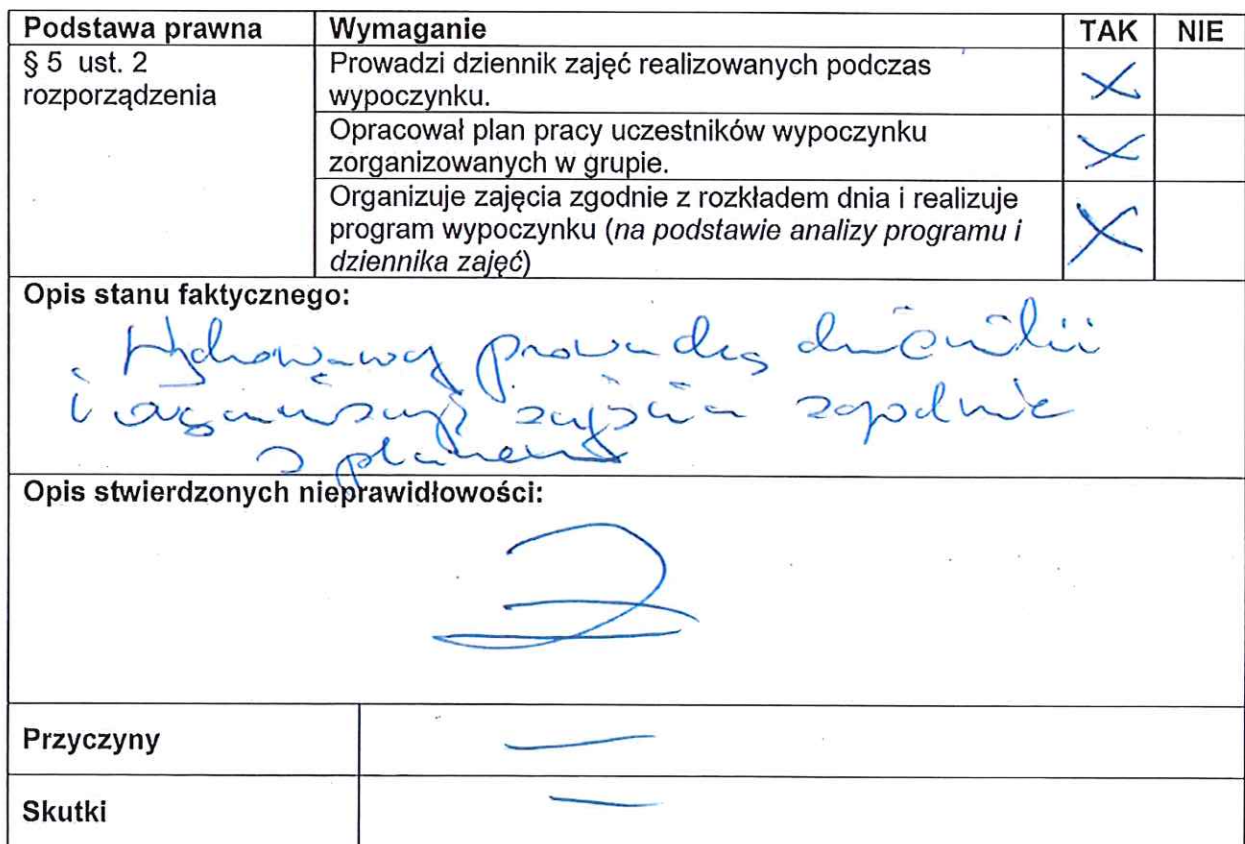 Podstawa prawna Wymaganie TAK NIE
§ 5 ust. 2
rozporządzenia
Prowadzi dziennik zajęć realizowanych podczas
wypoczynku.
Opracował plan pracy uczestników wypoczynku
zorganizowanych w grupie.
Organizuje zajęcia zgodnie z rozkładem dnia i realizuje
program wypoczynku (na podstawie analizy programu i
dziennika zajęć)
Opis stanu faktycznego:
Wychowawcy prowadzą dzienniki
i organizują zajęcia zgodnie
z planem
Opis stwierdzonych nieprawidłowości:
Przyczyny
Skutki